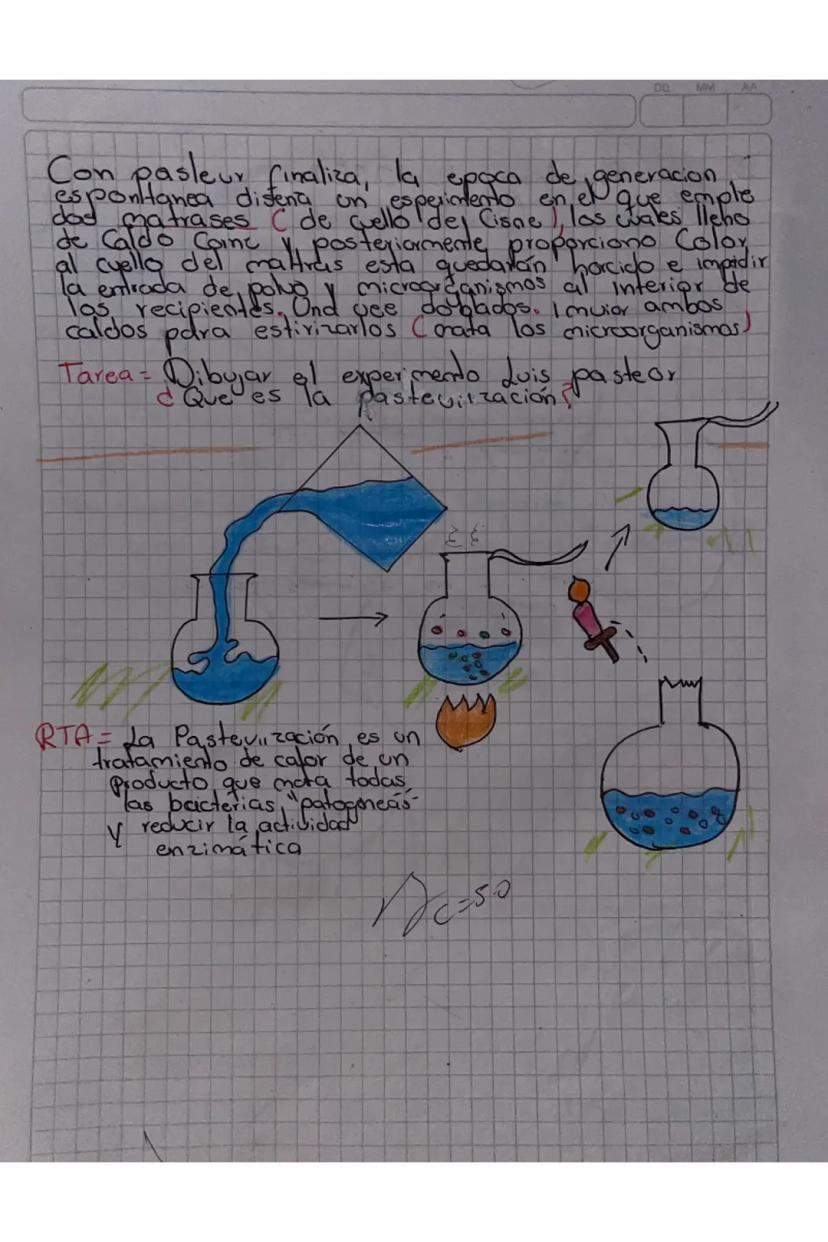 DD MM AA
Con pasteur finaliza, la epoca de generacion
espontanea diseña un esperimento en el que emple
dad matrases ( de cuello del Cisne ), los cuales lleno
de Caldo Carne y posteriormente proporciono Calor
al cuello del mattras esta quedarán horcido e impidir
la entrada de polvo y microorganismos al interior de
los recipientes. doblados. ambos
caldos para estirizarlos ( mata los microorganismos)
Tarea = Dibujar el experimento Luis pasteor
¿ Que es la pasteuirización?
RTA = La Pasteuirzación es un
tratamiento de calor de un
producto que mata todas
las bacterias "patogneas"
y reducir la actividad
enzimática
C=5.0